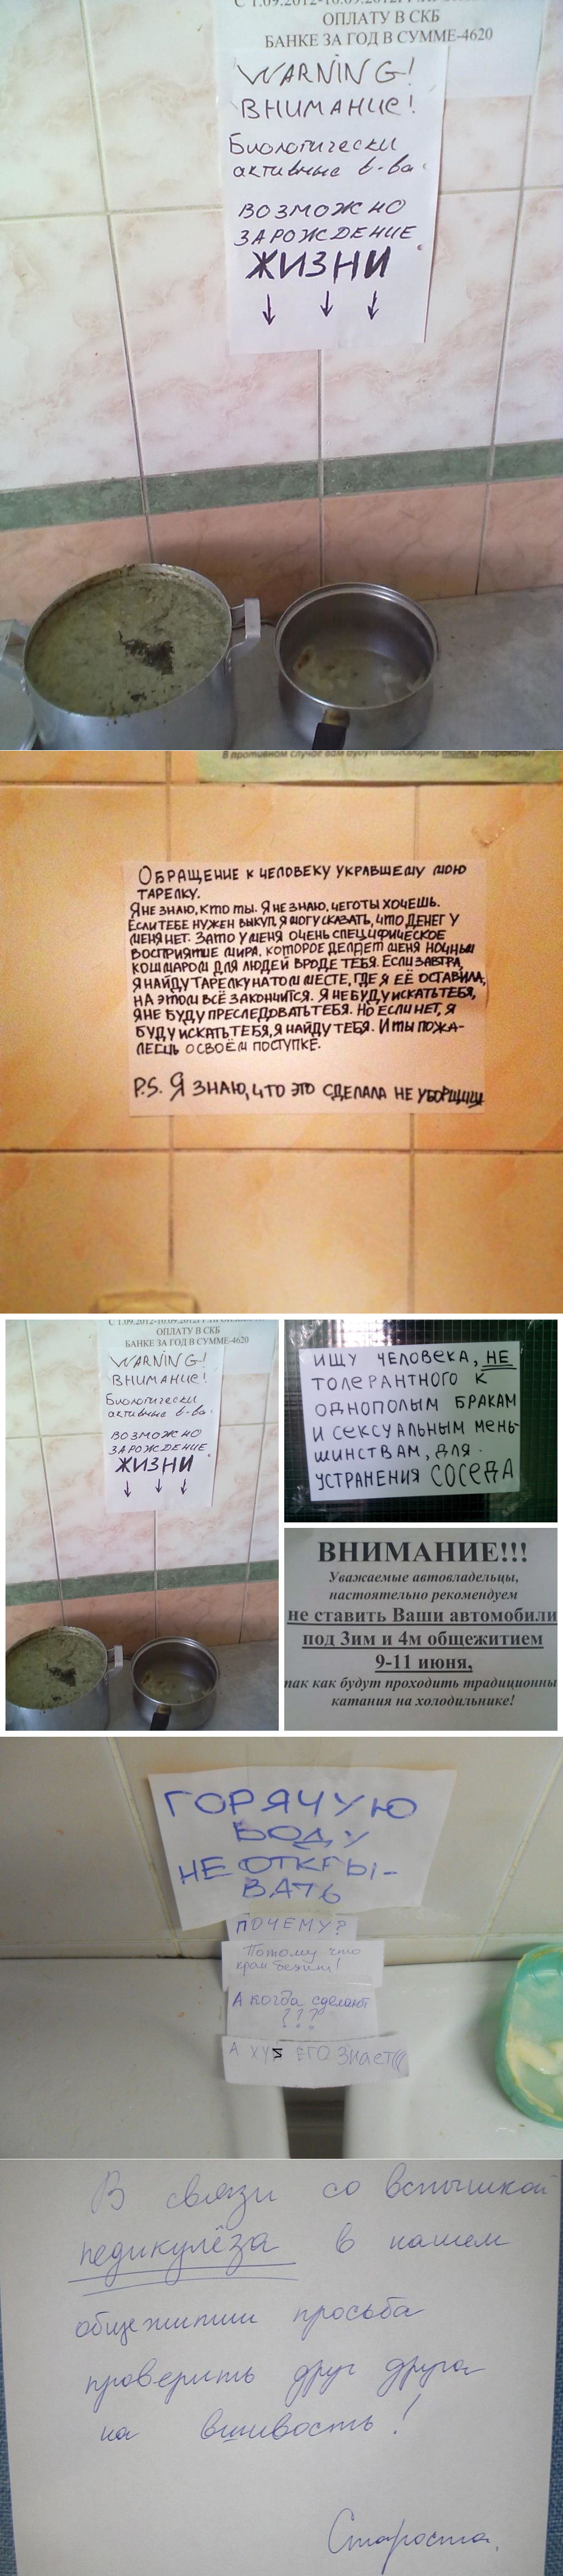 ОПЛАТУ В СКБ
БАНКЕ ЗА ГОД В СУММЕ-4620
WARNING!
ВНИМАНИЕ!
Биологически
активные в-ва.
ВОЗМОЖНО
ЗАРОЖДЕНИЕ
ЖИЗНИ
В противном случае вам будут
ОБРАЩЕНИЕ К ЧЕЛОВЕКУ УКРАВШЕМУ МОЮ
ТАРЕЛКУ.
Я НЕ ЗНАЮ, КТО ТЫ. Я НЕ ЗНАЮ, ЧЕГО ТЫ ХОЧЕШЬ.
ЕСЛИ ТЕБЕ НУЖЕН ВЫКУП, Я МОГУ СКАЗАТЬ, ЧТО ДЕНЕГ У
МЕНЯ НЕТ. ЗАТО У МЕНЯ ОЧЕНЬ СПЕЦИФИЧЕСКОЕ
ВОСПРИЯТИЕ МИРА, КОТОРОЕ ДЕЛАЕТ МЕНЯ НОЧНЫМ
КОШМАРОМ ДЛЯ ЛЮДЕЙ ВРОДЕ ТЕБЯ. ЕСЛИ ЗАВТРА,
Я НАЙДУ ТАРЕЛКУ НА ТОМ МЕСТЕ, ГДЕ Я ЕЁ ОСТАВИЛА,
НА ЭТОМ ВСЁ ЗАКОНЧИТСЯ. Я НЕ БУДУ ИСКАТЬ ТЕБЯ,
Я НЕ БУДУ ПРЕСЛЕДОВАТЬ ТЕБЯ. НО ЕСЛИ НЕТ, Я
БУДУ ИСКАТЬ ТЕБЯ, Я НАЙДУ ТЕБЯ. И ТЫ ПОЖА-
ЛЕЕШЬ О СВОЁМ ПОСТУПКЕ.
P.S. Я ЗНАЮ, ЧТО ЭТО СДЕЛАЛА НЕ УБОРЩИЦА
ОПЛАТУ В СКБ
БАНКЕ ЗА ГОД В СУММЕ-4620
WARNING!
ВНИМАНИЕ!
Биологически
активные в-ва.
ВОЗМОЖНО
ЗАРОЖДЕНИЕ
ЖИЗНИ
ИЩУ ЧЕЛОВЕКА, НЕ
ТОЛЕРАНТНОГО К
ОДНОПОЛЫМ БРАКАМ
И СЕКСУАЛЬНЫМ МЕНЬ-
ШИНСТВАМ, ДЛЯ
УСТРАНЕНИЯ СОСЕДА
ВНИМАНИЕ!!!
Уважаемые автовладельцы,
настоятельно рекомендуем
не ставить Ваши автомобили
под 3им и 4м общежитием
9-11 июня,
так как будут проходить традиционны
катания на холодильнике!
ГОРЯЧУЮ
ВОДУ
НЕ ОТКРЫ-
ВАТЬ
ПОЧЕМУ?
Потому что
кран бежит!
А когда сделают
???
А ХУЙ ЕГО ЗНАЕТ(((
В связи со вспышкой
педикулёза в нашем
общежитии просьба
проверить друг друга
на вшивость!
Староста.